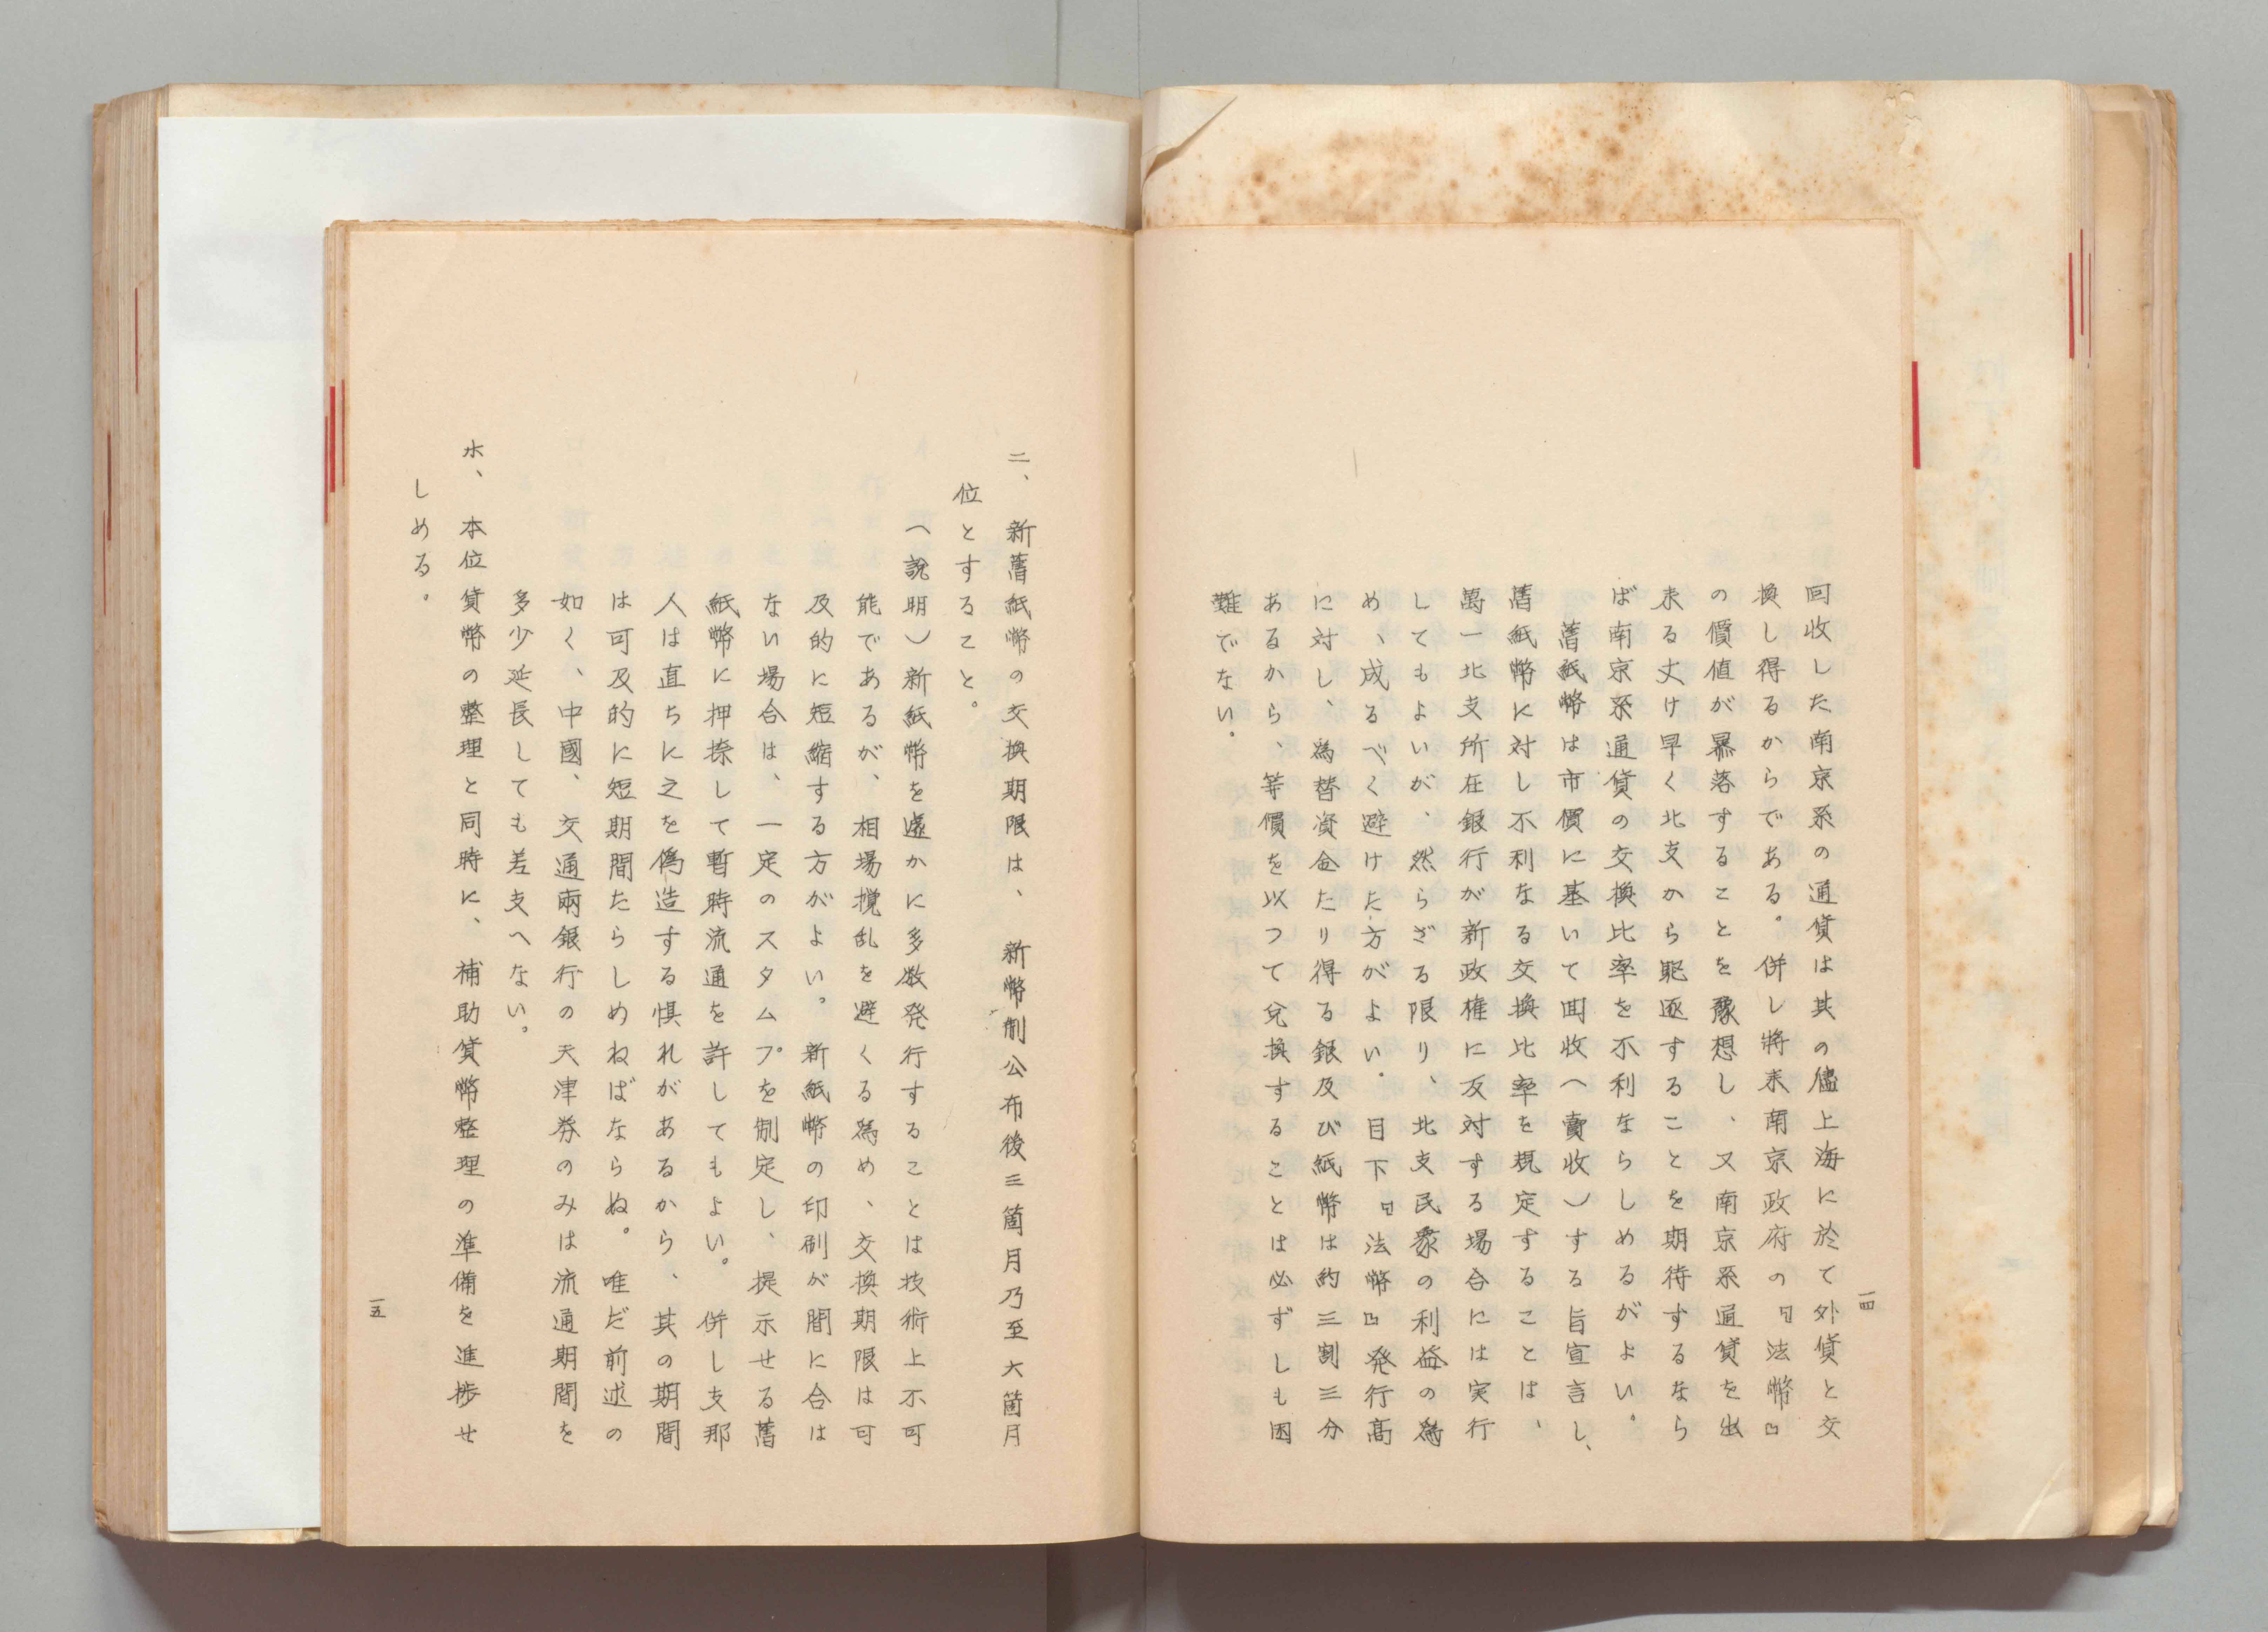 回收した南京系の通貨は其の儘上海に於て外貨と交
換し得るからである。併し將来南京政府の『法幣』
の價値が暴落することを豫想し、又南京系通貨を出
来る丈け早く北支から駆逐することを期待するなら
ば南京系通貨の交換比率を不利ならしめるがよい。
舊紙幣は市價に基いて回收（賣收）する旨宣言し、
舊紙幣に対し不利なる交換比率を規定することは、
萬一北支所在銀行が新政権に反対する場合には実行
してもよいが、然らざる限り、北支民衆の利益の為
め、成るべく避けた方がよい。目下『法幣』発行高
に対し、為替資金たり得る銀及び紙幣は約三割三分
あるから、等價を以つて兌換することは必ずしも困
難でない。
一四
ニ、新舊紙幣の交換期限は、新幣制公布後三箇月乃至六箇月
位とすること。
（説明）新紙幣を遽かに多数発行することは技術上不可
能であるが、相場撹乱を避くる為め、交換期限は可
及的に短縮する方がよい。新紙幣の印刷が間に合は
ない場合は、一定のスタムプを制定し、提示せる舊
紙幣に押捺して暫時流通を許してもよい。併し支那
人は直ちに之を偽造する惧れがあるから、其の期間
は可及的に短期間たらしめねばならぬ。唯だ前述の
如く、中國、交通兩銀行の天津券のみは流通期間を
多少延長しても差支へない。
ホ、本位貨幣の整理と同時に、補助貨幣整理の準備を進捗せ
しめる。
一五